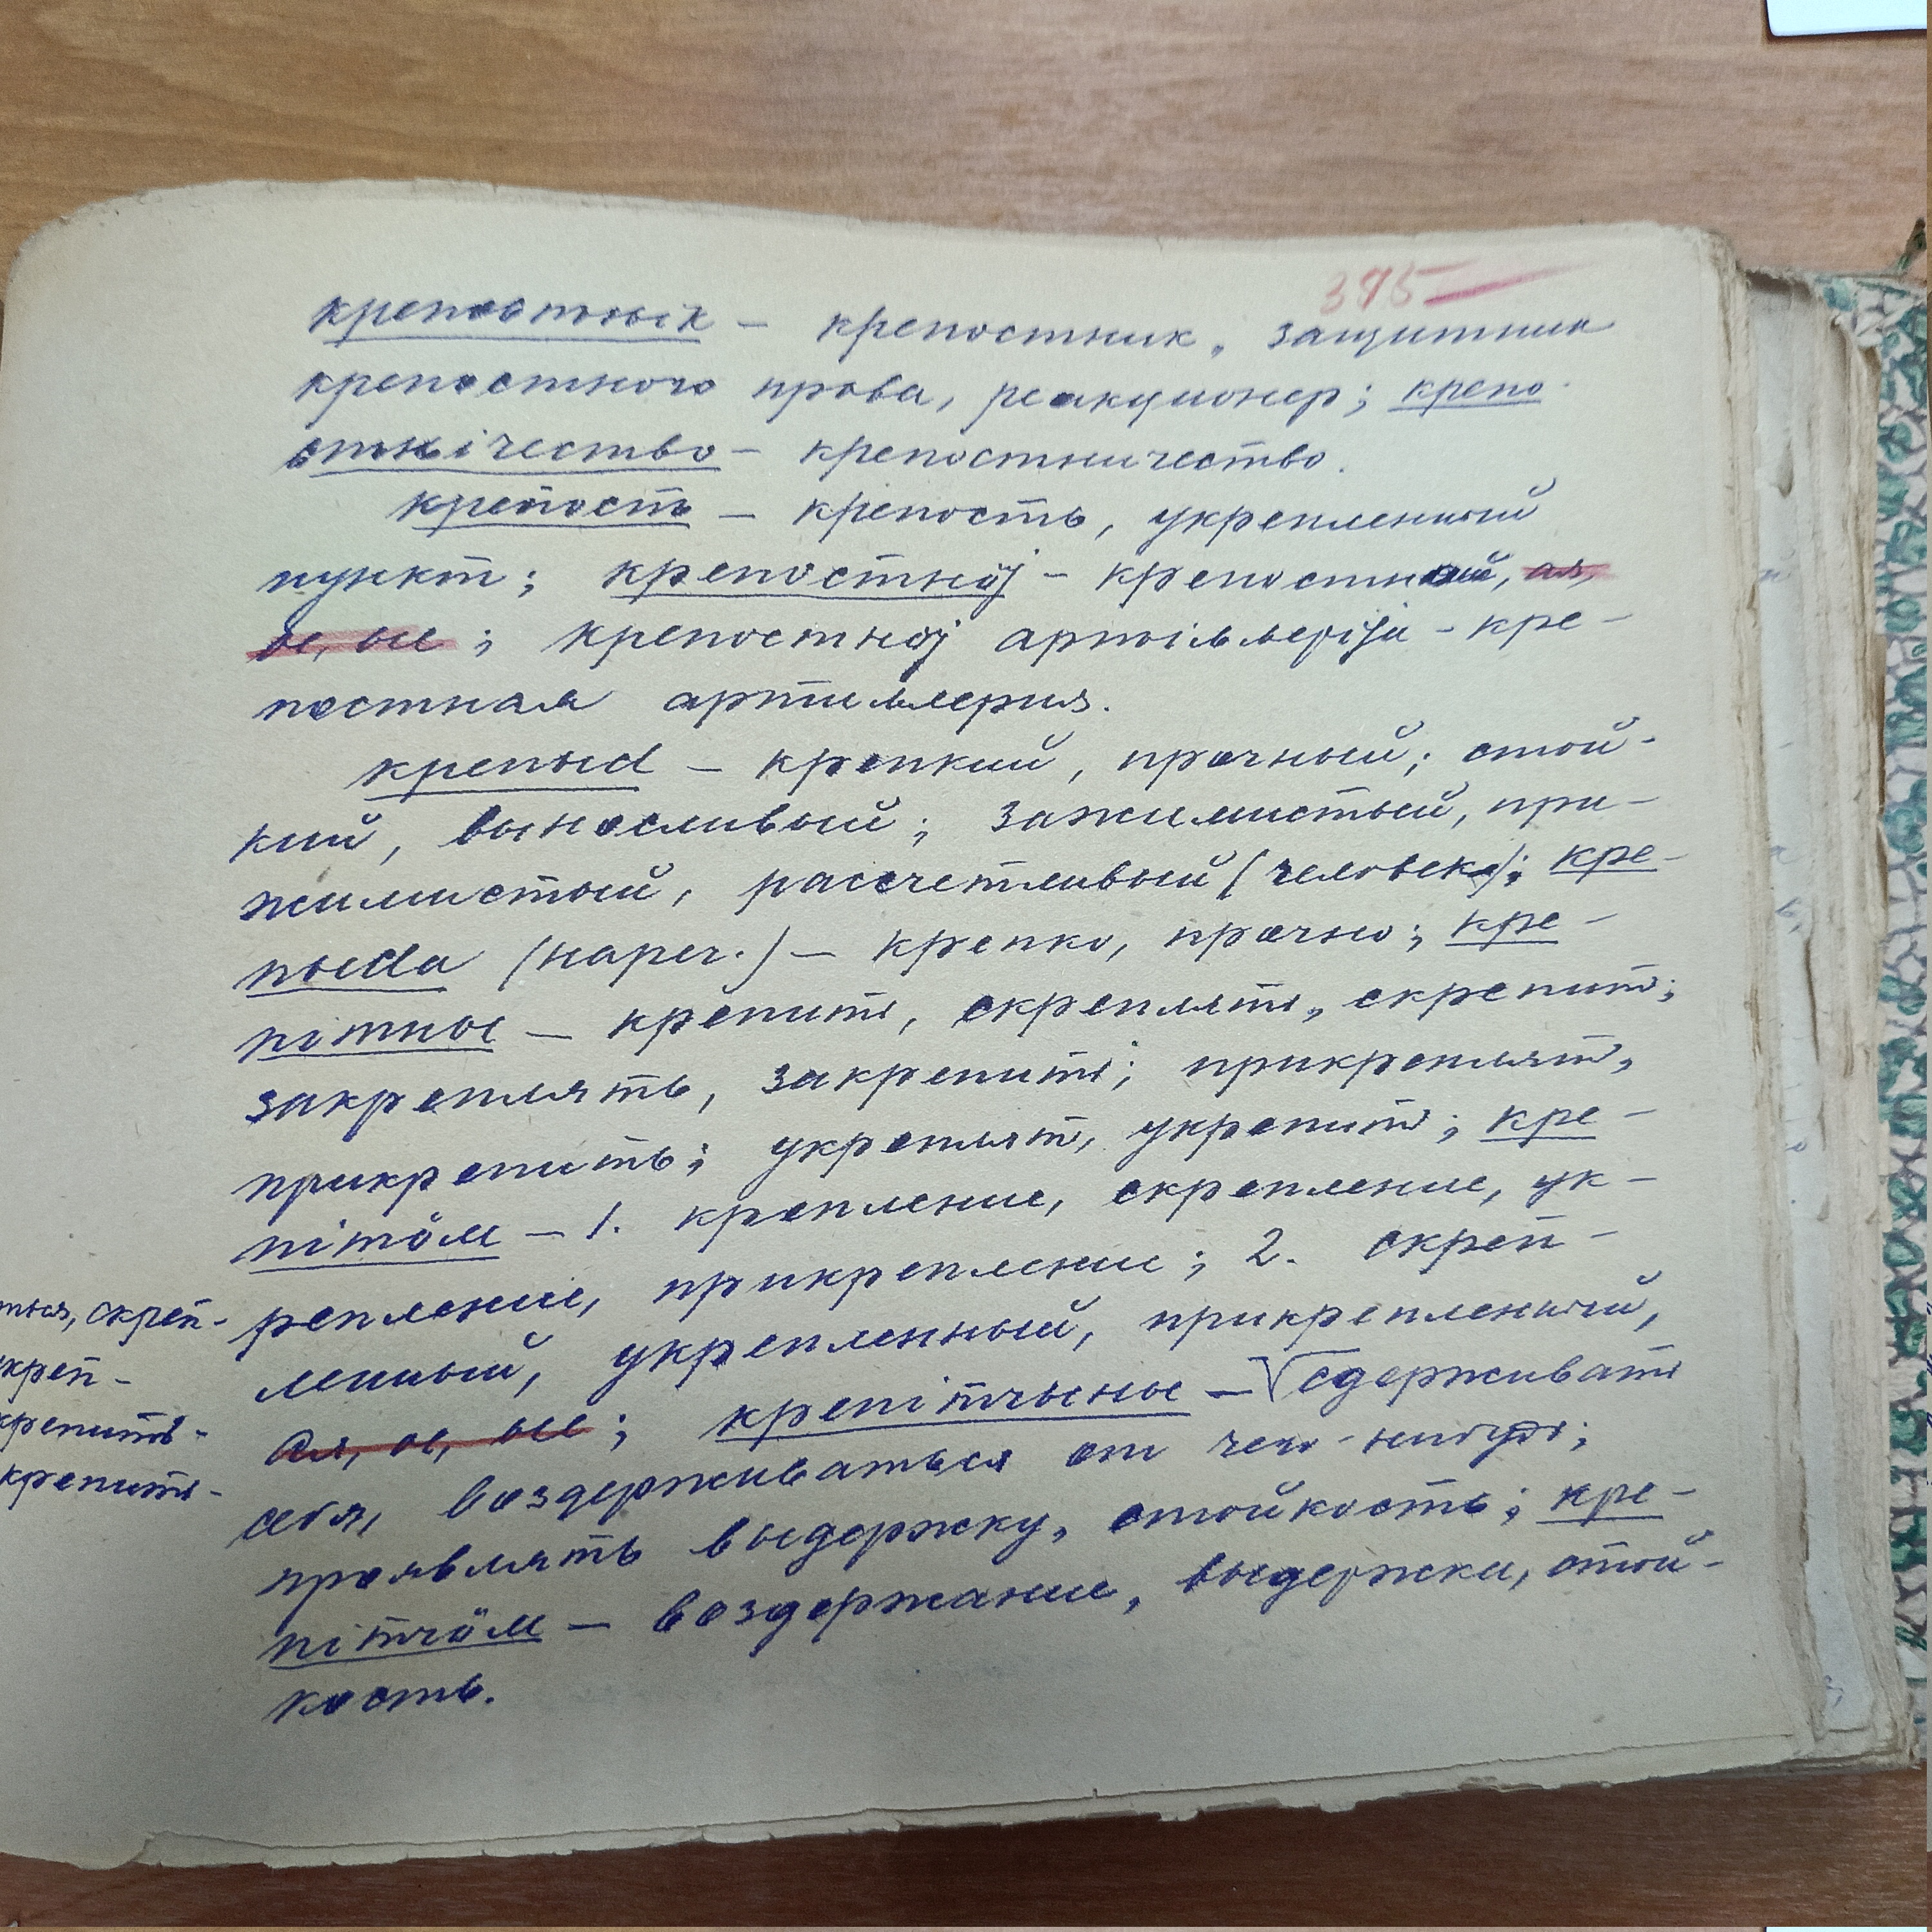 375
крепостнік – крепостник, защитник
крепостного права, реакционер; крепо-
стнічество – крепостничество.
крепость – крепость, укрепленный
пункт; крепостнӧј – крепостной, ая,
ое, ые; крепостнӧј артіллеріја – кре-
постная артиллерия.
крепыd – крепкий, прочный; стой-
кий, выносливый; зажимистый, при-
жимистый, рассчетливый (человек); кре-
пыdа (нареч.) – крепко, прочно; кре-
пітны – крепить, скреплять, скрепить;
закреплять, закрепить; прикреплять,
прикрепить; укреплять, укрепить; кре-
пітӧм – 1. крепление, скрепление, ук-
репление, прикрепление; 2. скреп-
ленный, укрепленный, прикрепленный,
ая, ое, ые; крепітчыны – √ сдерживать
себя, воздерживаться от чего-нибудь;
проявлять выдержку, стойкость; кре-
пітчӧм – воздержание, выдержка, стой-
кость.
ться, скреп-
креп-
крепить-
крепить-